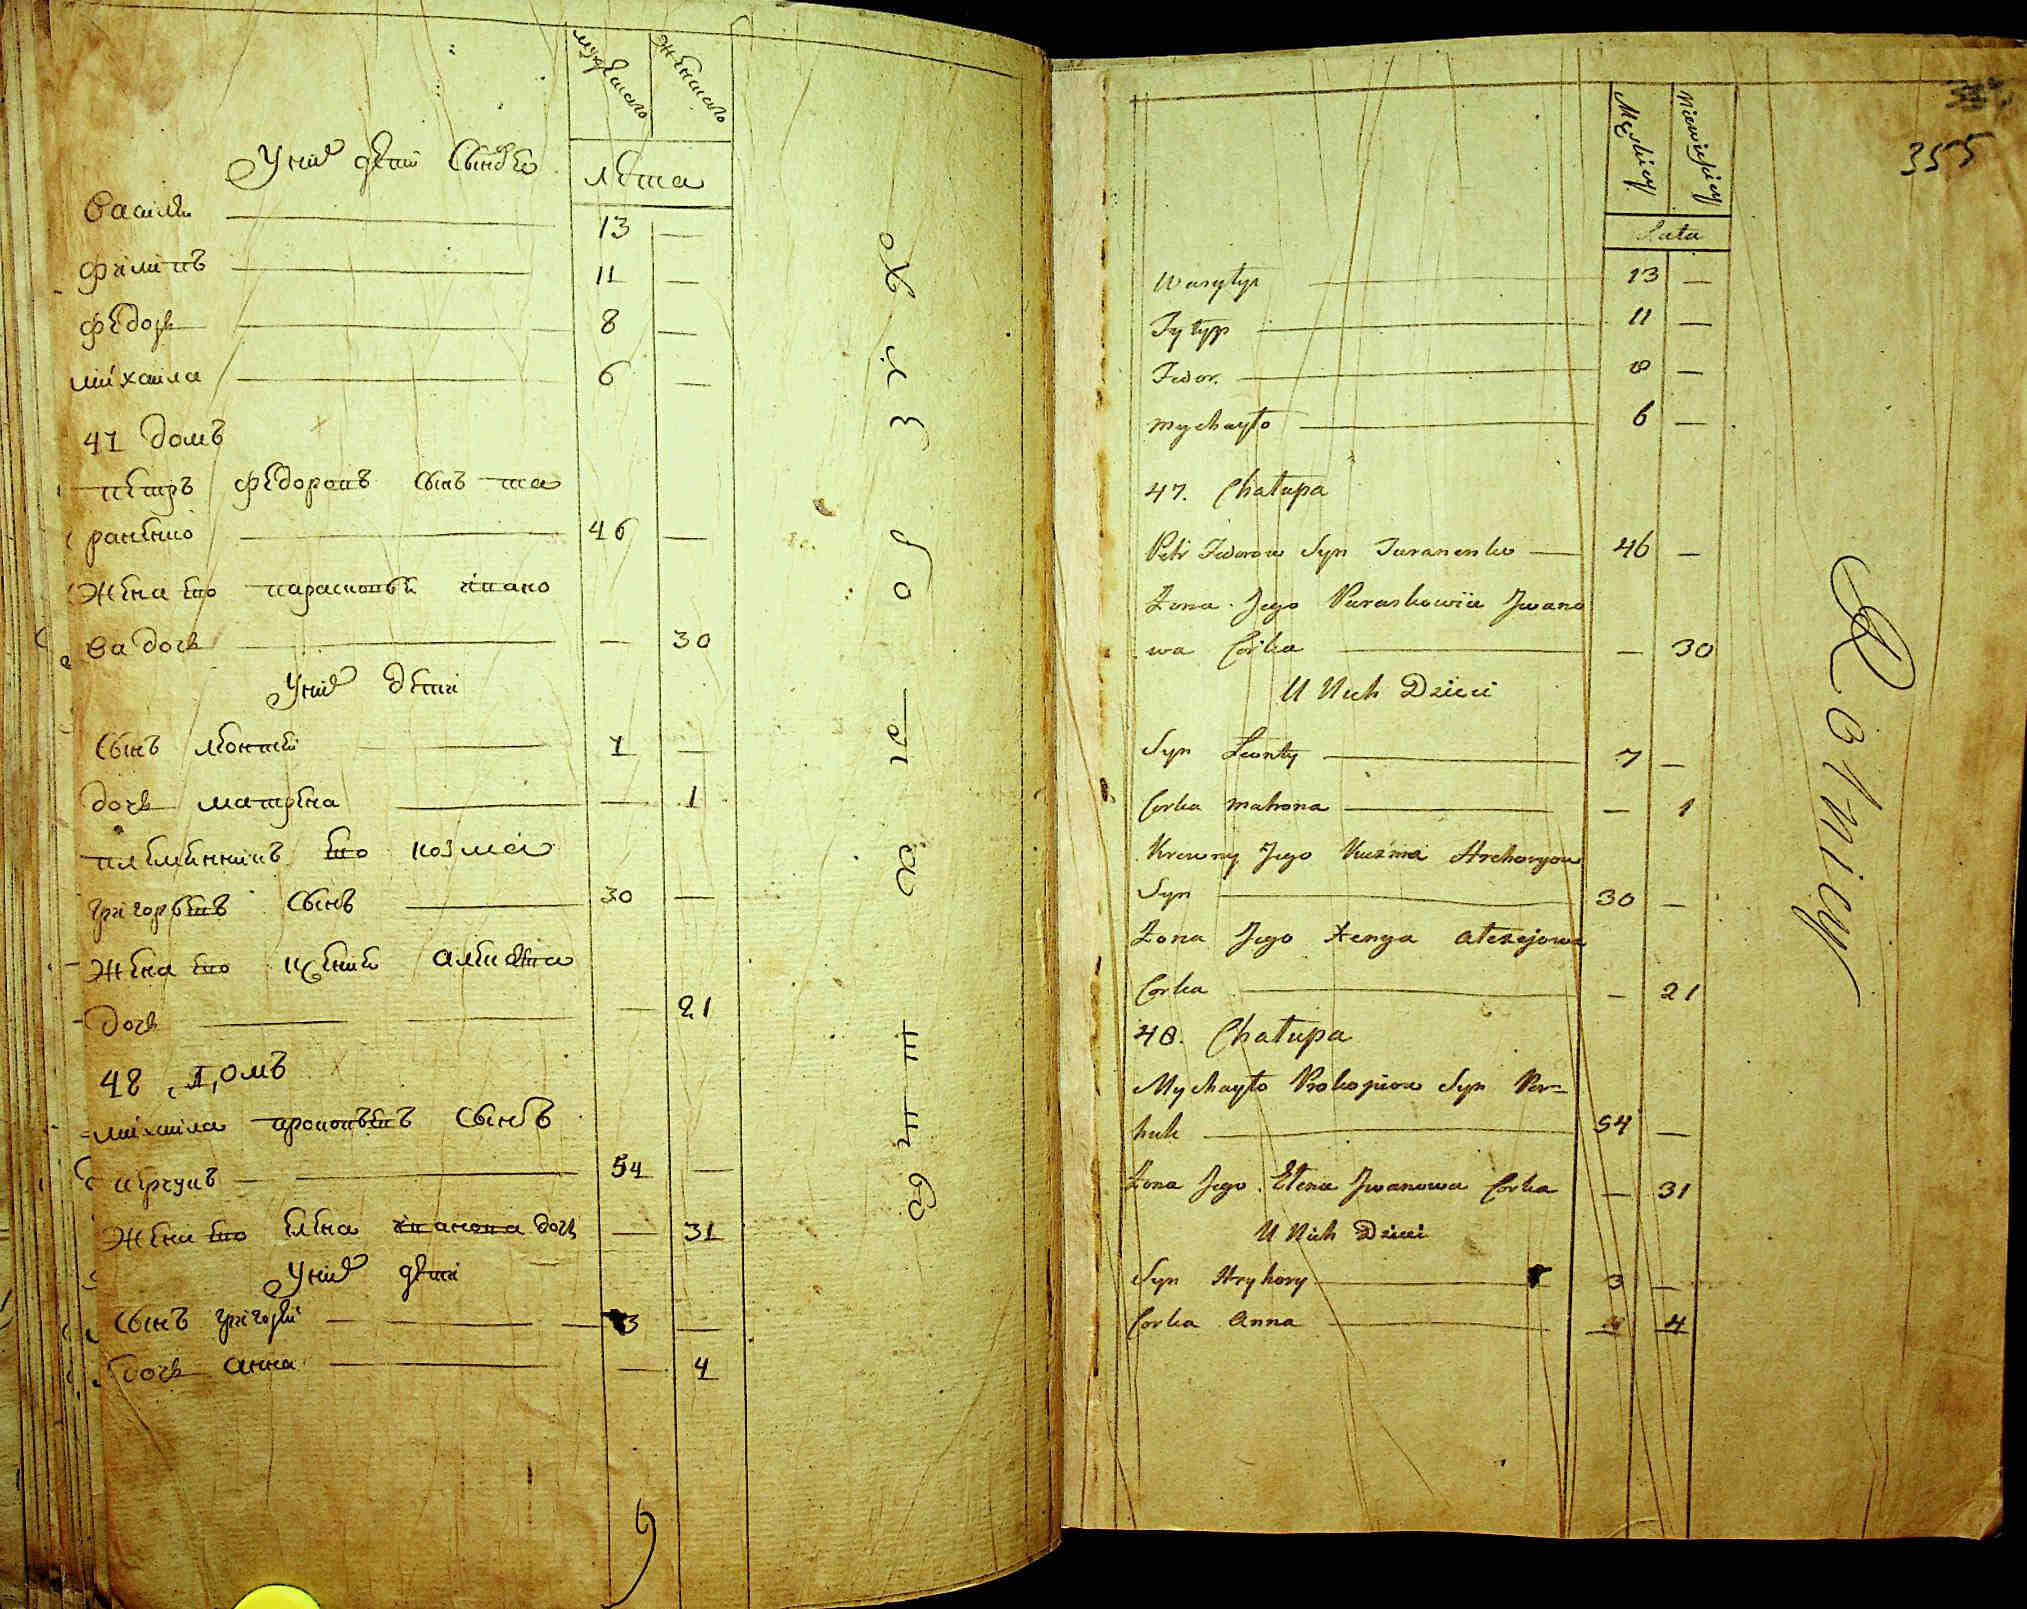 мужеска женска
У них дети сыновья
лета
василей 13 —
филипъ 11 —
федоръ 8 —
михайла 6 —
47 домъ
петръ федоровъ сынъ та
раненко 46 —
жена его парасковья ивано
ва дочь — 30
У них дети
сынъ леонтей 7 —
дочь матрена — 1
племянникъ его козма
григорьевъ сынъ 30 —
жена его ксения алексеева
дочь — 21
48 домъ
михайла прокопьевъ сынъ
перчукъ 54 —
жена его елена иванова дочь — 31
У них дети
сынъ григорей 3 —
дочь анна — 4
355
Męskiey Niewieskiey
Lata
Wasylyi 13 —
Fylypp 11 —
Fedor. 8 —
Mychayło 6 —
47. Chałupa
Petr Fedorow Syn Taranenko — 46 —
Żona Jego Paraskowiia Jwano
wa Corka — 30
U Nich Dzieci
Syn Leonty 7 —
Corka Matrona — 1
Krewny Jego Kuzma Hrehoryow
Syn 30 —
Żona Jego Xenya Alexejowa
Corka — 21
48. Chałupa
Mychayło Prokopiow Syn Per=
huk 54 —
Żona Jego Elena Jwanowa Corka — 31
U Nich Dzieci
Syn Hryhory 3 —
Corka Anna 4
Rolnicy